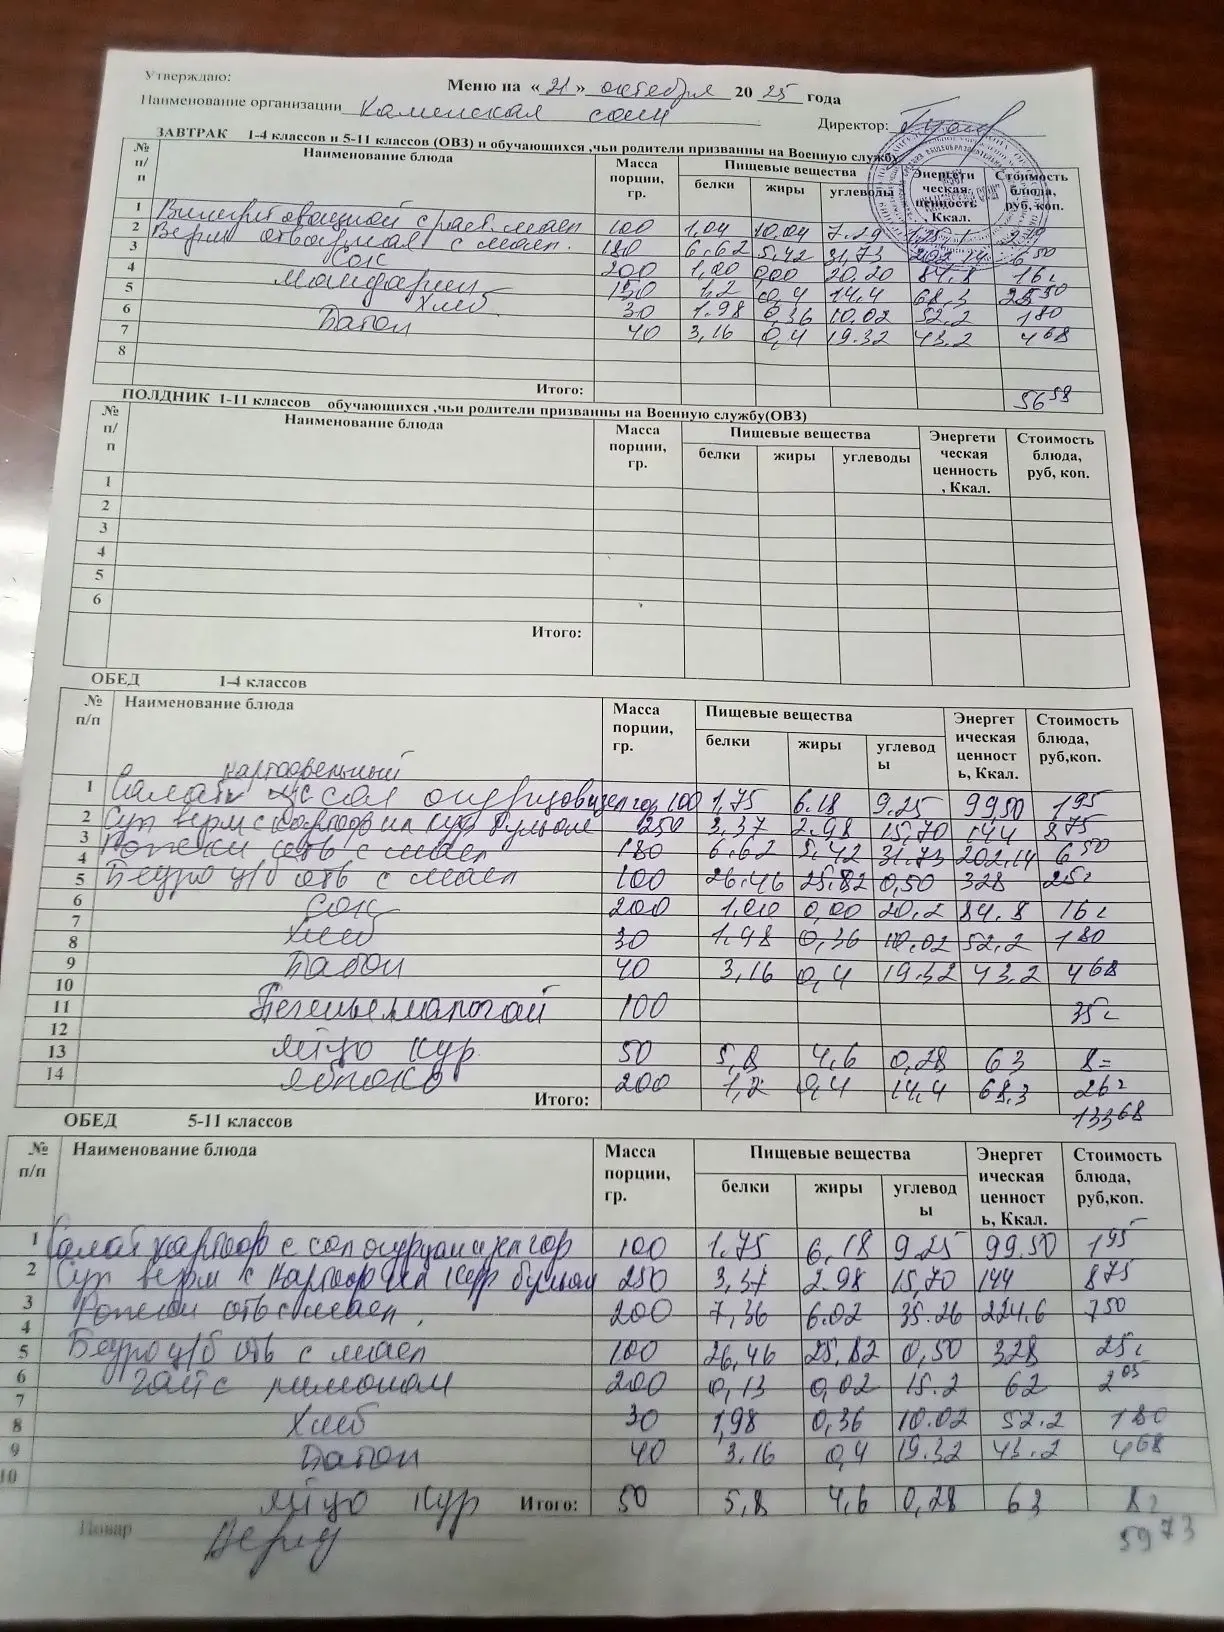 Утверждаю:
Меню на «21» октября 2025 года
Наименование организации Каменская сош
Директор:
ЗАВТРАК 1-4 классов и 5-11 классов (ОВЗ) и обучающихся ,чьи родители призванны на Военную службу
№ п/п Наименование блюда Масса порции, гр. Пищевые вещества Энергетическая ценность, Ккал. Стоимость блюда, руб, коп.
белки жиры углеводы
1 Винегрет овощной с раст. масл 100 1,04 10,04 7.29
2 Верм отварная с масл. 180 6.62 5,42 31,73 202,14 6 50
3 Сок 200 1,00 0,00 20,20 84,8 16
4 Мандарин 150 1,2 0,4 14,4 68,3
5 Хлеб 30 1.98 0,36 10,02 52.2 1 80
6 Батон 40 3,16 0,4 19.32 43.2 4 68
7
8
Итого: 56 58
ПОЛДНИК 1-11 классов обучающихся ,чьи родители призванны на Военную службу(ОВЗ)
№ п/п Наименование блюда Масса порции, гр. Пищевые вещества Энергетическая ценность, Ккал. Стоимость блюда, руб, коп.
белки жиры углеводы
1
2
3
4
5
6
Итого:
ОБЕД 1-4 классов
№ п/п Наименование блюда Масса порции, гр. Пищевые вещества Энергетическая ценность, Ккал. Стоимость блюда, руб,коп.
белки жиры углеводы
картофельный
1 Салат с сол огурцом и зел гор 100 1,75 6.18 9.25 99,50 1 95
2 Суп верм с картоф на кур бульоне 250 3,37 2.98 15,70 144 8 75
3 Рожки отв с масл 180 6.62 5.42 31.73 202,14 6 50
4 Бедро ц/б отв с масл 100 26.46 25.82 0,50 328 25
5
6 Сок 200 1.00 0,00 20,2 84.8 16
7 Хлеб 30 1.98 0,36 10.02 52,2 1 80
8
9 Батон 40 3,16 0,4 19.32 43.2 4 68
10
11 Печенье 100 35
12
13 яйцо кур. 50 5,8 4,6 0,28 63 8=
14 яблоко 200 1,2 0,4 14,4 68,3 26
Итого: 133 68
ОБЕД 5-11 классов
№ п/п Наименование блюда Масса порции, гр. Пищевые вещества Энергетическая ценность, Ккал. Стоимость блюда, руб,коп.
белки жиры углеводы
1 Салат картоф с сол огурцом и зел гор 100 1.75 6,18 9.25 99.50 1 95
2 Суп верм с картоф на кур бульон 250 3,37 2.98 15,70 144 8 75
3 Рожки отв с масл. 200 7,36 6.02 35.26 224.6 7 50
4
5 Бедро ц/б отв с масл 100 26,46 25,82 0,50 328 25
6 чай с лимоном 200 0,13 0,02 15.2 62 2 05
7
8 Хлеб 30 1,98 0,36 10.02 52.2 1 80
9 Батон 40 3.16 0,4 19.32 43.2 4 68
10
яйцо кур Итого: 50 5,8 4,6 0,28 63 8
59 73
Повар